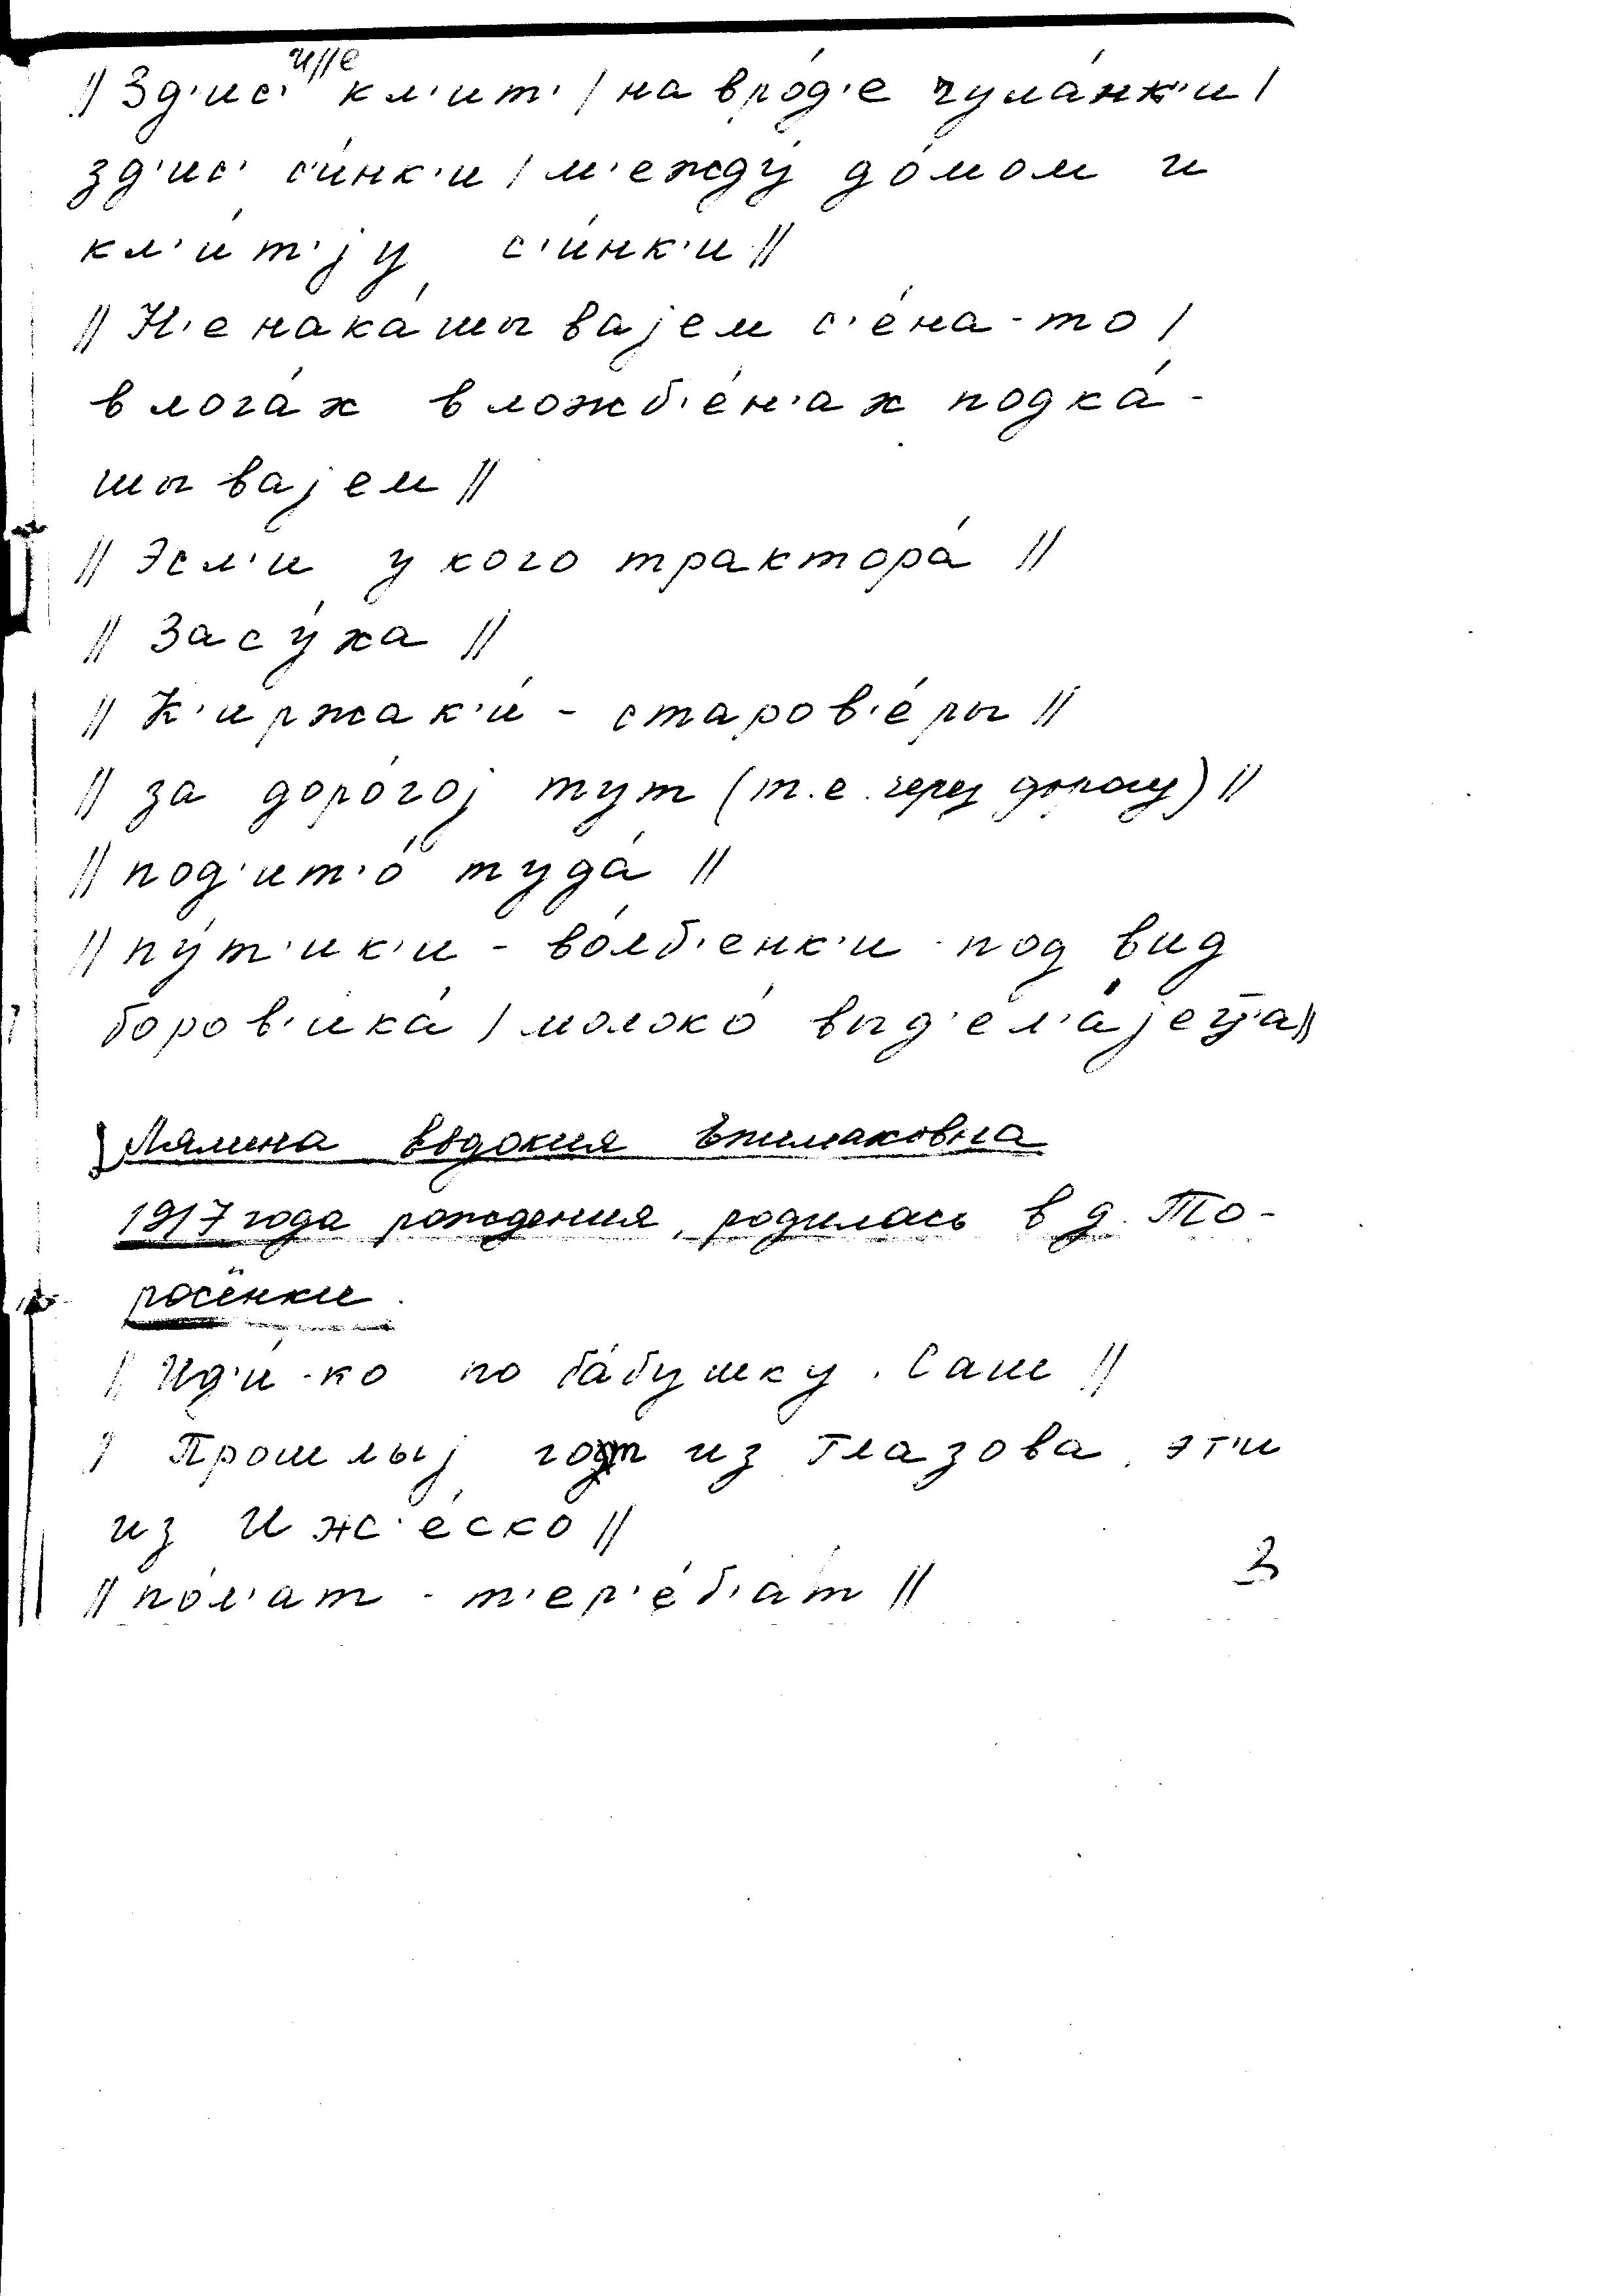 и//е
// Зд'ис' кл'ит' / на врóд'е чулáнк'и /
зд'ис' с'и́нк'и / м'еждý дóмом и
кл'и́т'jу с'и́нк'и //
// Н'е накáшываjем с'éна-то /
в логáх в ложб'éн'ах подкá-
шываjем //
// Эсл'и у кого тракторá //
// Засýха //
// К'иржак'и́ - старов'éры //
// за дорóгоj тут (т.е. через дорогу) //
// под'ит'ó тудá //
// пýт'ик'и - вóлб'енк'и под вид
боров'икá / молокó выд'ел'ájец̄'а //
Лялина Евдокия Епимаковна
1917 года рождения, родилась в д. То-
росёнки.
// Ид'и́-ко по бáбушку. Саш //
/ Прошлыj гот из Глазова, эт'и
из Иж'éско //
// пóл'ат - т'ер'éб'áт //
3